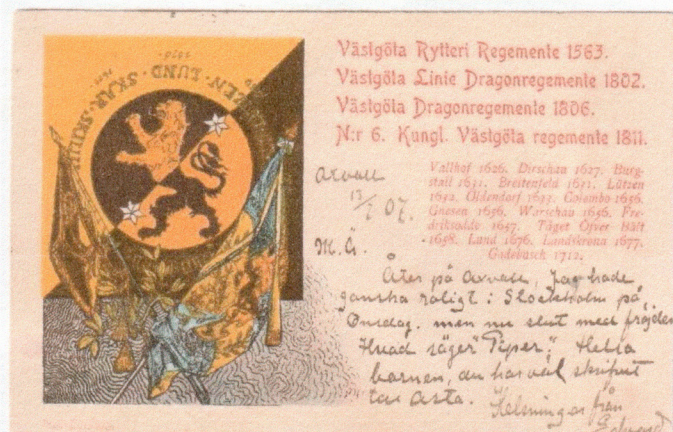 Västgöta Rytteri Regemente 1563.
Västgöta Linie Dragonregemente 1802.
Västgöta Dragonregemente 1806.
N:r 6. Kungl. Västgöta regemente 1811.
LUND · SKÄR
Vallhof 1626. Dirschau 1627. Burg-
stall 1631. Breitenfeld 1631. Lützen
1632. Oldendorf 1633. Golombo 1656.
Gnesen 1656. Warschau 1656. Fre-
driksodde 1657. Tåget Öfver Bält
1658. Lund 1676. Landskrona 1677.
Gadebusch 1712.
Axvall
13/7 07.
M. G.
Åter på Axvall, Jag hade
ganska roligt i Stockholm på
Onsdag. men nu slut med fröjden
Hvad säger "Piper", Helsa
barnen, du har väl skrifvit
Helsningar från
Edvard